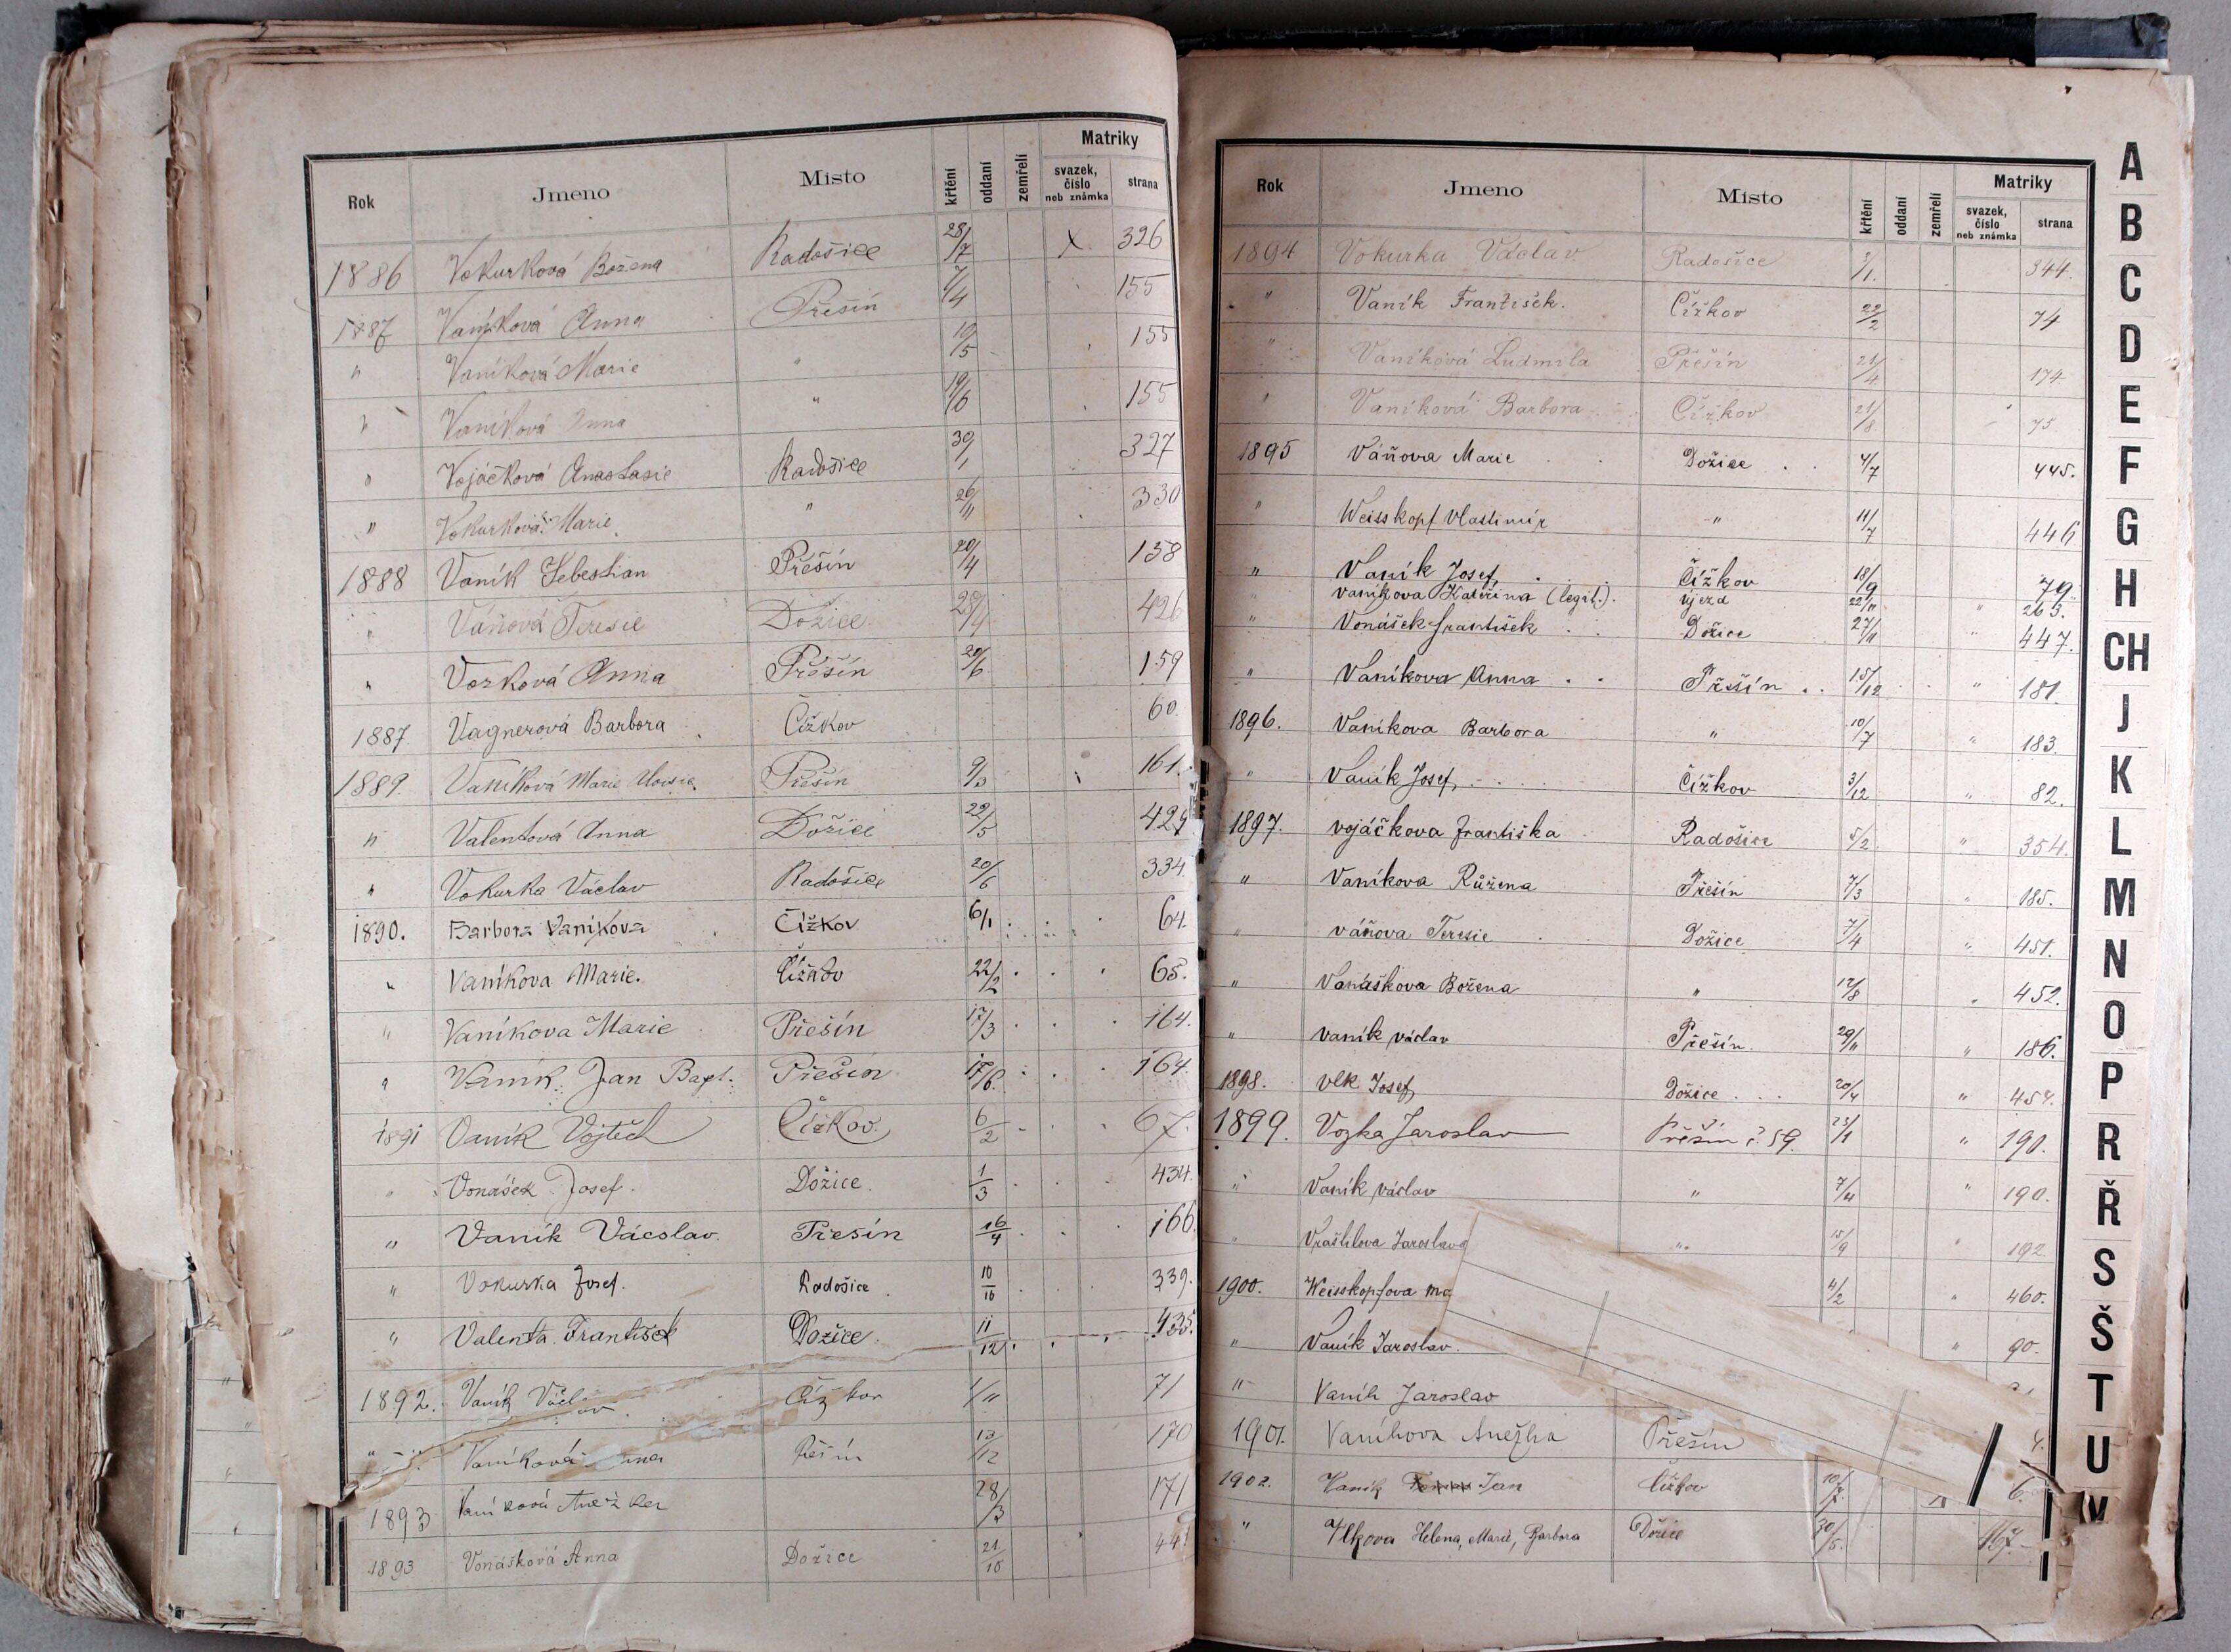 Rok Jmeno Místo křtění oddaní zemřelí Matriky svazek, číslo neb známka strana
1886 Vokurková Božena Radošice 28/7 X 326
1887 Vaníková Anna Přešín 7/4 155
" Vaníková Marie " 10/5 155
" Vaníková Anna " 19/6 155
" Vojáčková Anastasie Radošice 30/1 327
" Vokurková Marie " 26/11 330
1888 Vaník Šebestian Přešín 20/4 158
" Váňová Teresie Dožice 28/4 426
" Vozková Anna Přešín 20/6 159
1887 Vagnerová Barbora Čížkov 60.
1889 Vaníková Marie Přešín 9/3 161.
" Valentová Anna Dožice 22/5 429
" Vokurka Václav Radošice 20/6 334.
1890. Barbora Vaníkova Čížkov 6/1 64.
" Vaníkova Marie. Čížkov 22/2 65.
" Vaníkova Marie Přešín 17/3 164.
" Vaník Jan Bapt. Přešín 17/6. 164.
1891 Vaník Vojtěch Čížkov. 6/2 67.
" Vonášek Josef. Dožice. 1/3 434.
" Vaník Vácslav. Přešín 16/4 166.
" Vokurka Josef. Radošice 10/10 339.
" Valenta František Dožice. 11/12 435.
1892. Vaník Václav Čížkov 1/11 71
" Vaníková Přešín 12/12 170
1893 Vaníková Anežka 28/3 171
1893 Vonášková Anna Dožice 21/10 44
Rok Jmeno Místo křtění oddaní zemřelí Matriky svazek, číslo neb známka strana
1894 Vokurka Václav Radošice 3/1. 344.
" Vaník František. Čížkov 22/2 74
" Vaníková Ludmila Přešín 21/4 174
" Vaníková Barbora Čížkov 21/8 75
1895 Váňova Marie Dožice 4/7 445.
" Weisskopf Vlastimír " 11/7 446
" Vaník Josef, Čížkov 18/9 79.
" Vaníkova Kateřina (legit.). Újezd 22/11 " 263.
" Vonášek František Dožice 27/11 " 447.
" Vaníkova Anna Přešín 15/12 " 181.
1896. Vaníkova Barbora " 10/7 " 183.
" Vaník Josef, Čížkov 3/12 " 82.
1897. Vojáčkova Františka Radošice 5/2 " 354.
" Vaníkova Růžena Přešín 7/3 " 185.
" Váňova Teresie Dožice 7/4 " 451.
" Vanáškova Božena " 12/8 " 452.
" Vaník Václav Přešín. 29/11 " 186.
1898. Vlk Josef, Dožice 20/4 " 454.
1899. Vozka Jaroslav Přešín č. 59. 23/1 " 190.
" Vaník Václav " 7/4 " 190.
" Jaroslava " 15/9 " 192
1900. Weisskopfova 4/2 " 460.
" Vaník Jaroslav. " 90.
" Vaník Jaroslav
1901. Vaníkova Anežka Přešín
1902. Vaník Jan Čížkov 6.
" Vlkova Helena, Marie, Barbora Dožice 30/5. 467.
A
B
C
D
E
F
G
H
CH
J
K
L
M
N
O
P
R
Ř
S
Š
T
U
V